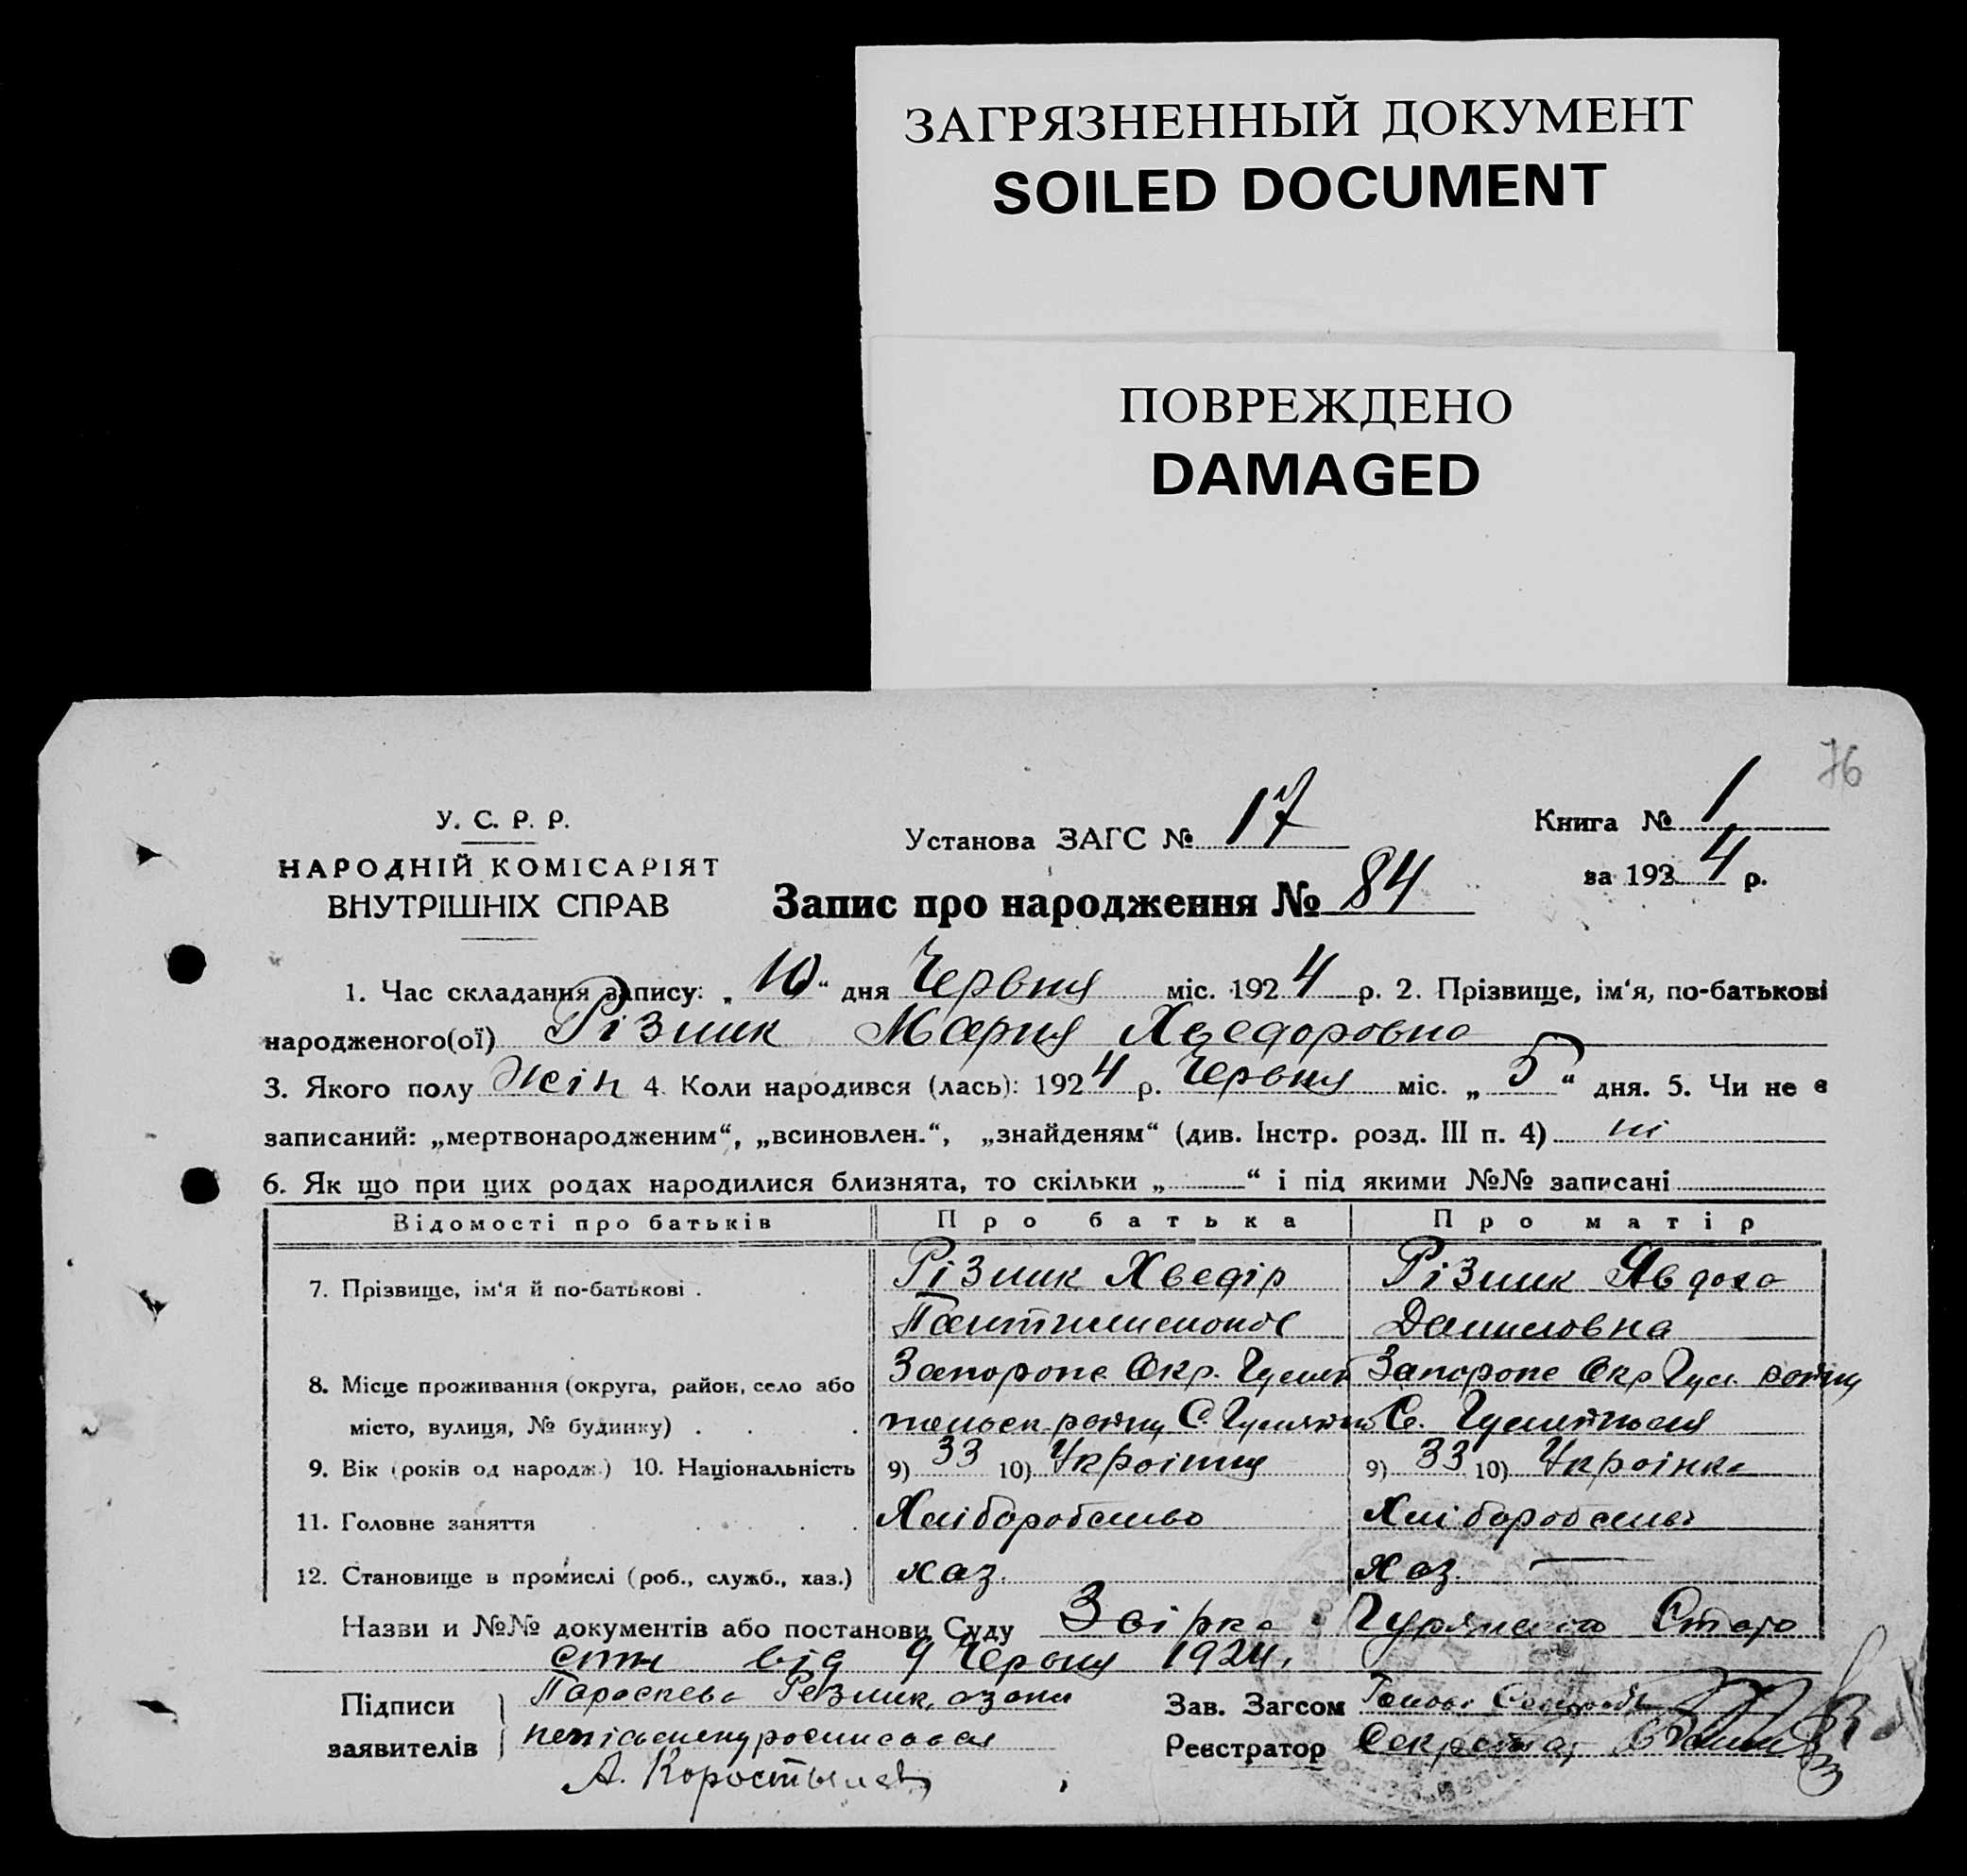 ЗАГРЯЗНЕННЫЙ ДОКУМЕНТ
SOILED DOCUMENT
ПОВРЕЖДЕНО
DAMAGED
76
У. С. Р. Р.
НАРОДНІЙ КОМІСАРІЯТ
ВНУТРІШНІХ СПРАВ
Установа ЗАГС № 17
Запис про народження № 84
Книга № 1
за 1924 р.
1. Час складання запису: „10“ дня Червня міс. 1924 р. 2. Прізвище, ім‘я, по-батькові
народженого(ої) Різник Мария Хведоровна
3. Якого полу жін 4. Коли народився (лась): 1924 р. Червня міс. „5“ дня. 5. Чи не є
записаний: „мертвонародженим“, „всиновлен.“, „знайденям“ (див. Інстр. розд. III п. 4) ні
6. Як що при цих родах народилися близнята, то скільки „ “ і під якими №№ записані
Відомості про батьків Про батька Про матір
7. Прізвище, ім‘я й по-батькові . Різник Хведір Різник Явдоха
Даниловна
8. Місце проживання (округа, район, село або Запоропс Окр. Запоропс Окр
місто, вулиця, № будинку) . . . С. С.
9. Вік (років од народж.) 10. Національність 9) 33 10) Украінця 9) 33 10) Украінка
11. Головне заняття Хліборобство Хліборобство
12. Становище в промислі (роб., служб., хаз.) хаз. хаз.
Назви и №№ документів або постанови Суду
від 9 Червня 1924.
Підписи Зав. Загсом
заявителів Реєстратор Секретар
А.